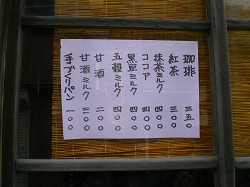 珈琲 三五〇
紅茶 三〇〇
抹茶ミルク 四〇〇
ココア 四〇〇
黒豆ミルク 四〇〇
五穀ミルク 四〇〇
甘酒 二〇〇
甘酒ミルク 三〇〇
手づくりパン 一〇〇